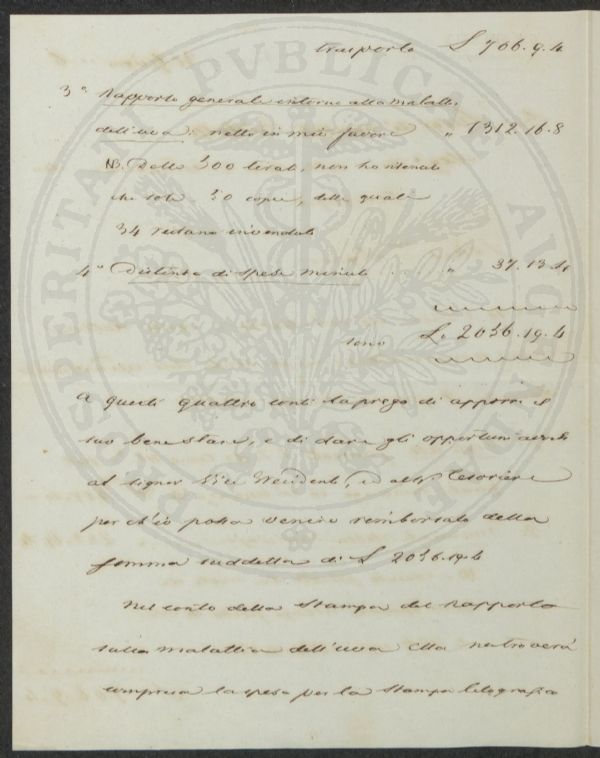 trasporto £ 706.9.4
3° Rapporto generale intorno alla malattia
dell'uva: netto in mio favore " 1312.16.8
NB. Delle 500 tirate, non ho ritenute
che sole 50 copie, delle quali
34 restano invendute
4° Distinta di spese minute . . . " 37.13.4
sono £. 2056.19.4
A questi quattro conti la prego di apporre il
suo bene stare, e di dare gli opportuni avvisi
al signor Vice Presidente, ed al Tesoriere
perch'io possa venire rimborsato della
somma suddetta di £ 2056.19.4
Nel conto della stampa del Rapporto
sulla malattia dell'uva Ella ne troverà
compresa la spesa per la stampa litografica
PROSPERITATI PVBLICAE AVGENDAE